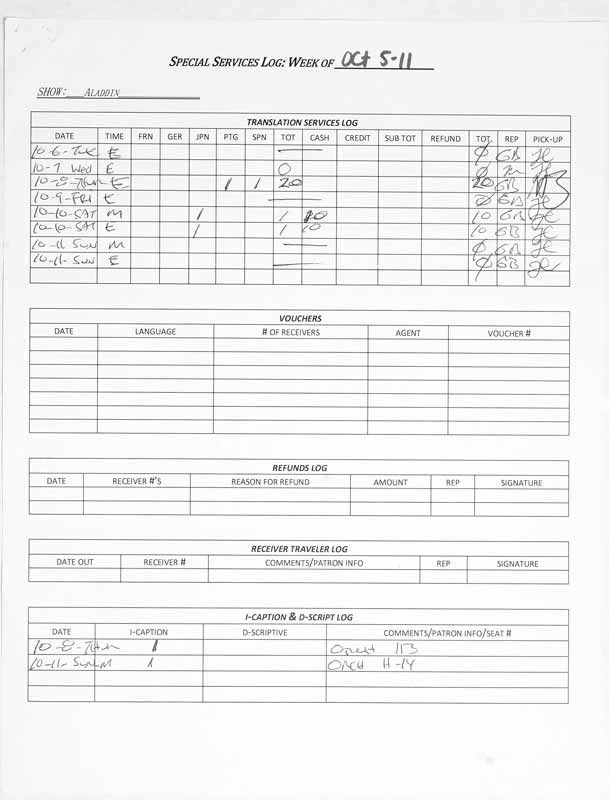 SPECIAL SERVICES LOG: WEEK OF OCT 5-11
SHOW: ALADDIN
TRANSLATION SERVICES LOG
DATE TIME FRN GER JPN PTG SPN TOT CASH CREDIT SUB TOT REFUND TOT REP PICK-UP
10-6-TUE E — Ø GB JC
10-7 Wed E O Ø JC
10-8-THUR E 1 1 20 20 GB
10-9-FRI E Ø GB JC
10-10-SAT M 1 1 10 10 GB JC
10-10-SAT E 1 1 10 10 GB JC
10-11 SUN M — Ø GB JC
10-11-SUN E — Ø GB JC
VOUCHERS
DATE LANGUAGE # OF RECEIVERS AGENT VOUCHER #
REFUNDS LOG
DATE RECEIVER #'S REASON FOR REFUND AMOUNT REP SIGNATURE
RECEIVER TRAVELER LOG
DATE OUT RECEIVER # COMMENTS/PATRON INFO REP SIGNATURE
I-CAPTION & D-SCRIPT LOG
DATE I-CAPTION D-SCRIPTIVE COMMENTS/PATRON INFO/SEAT #
10-8-THUR 1 ORCH 113
10-11-SUN M 1 ORCH H-14